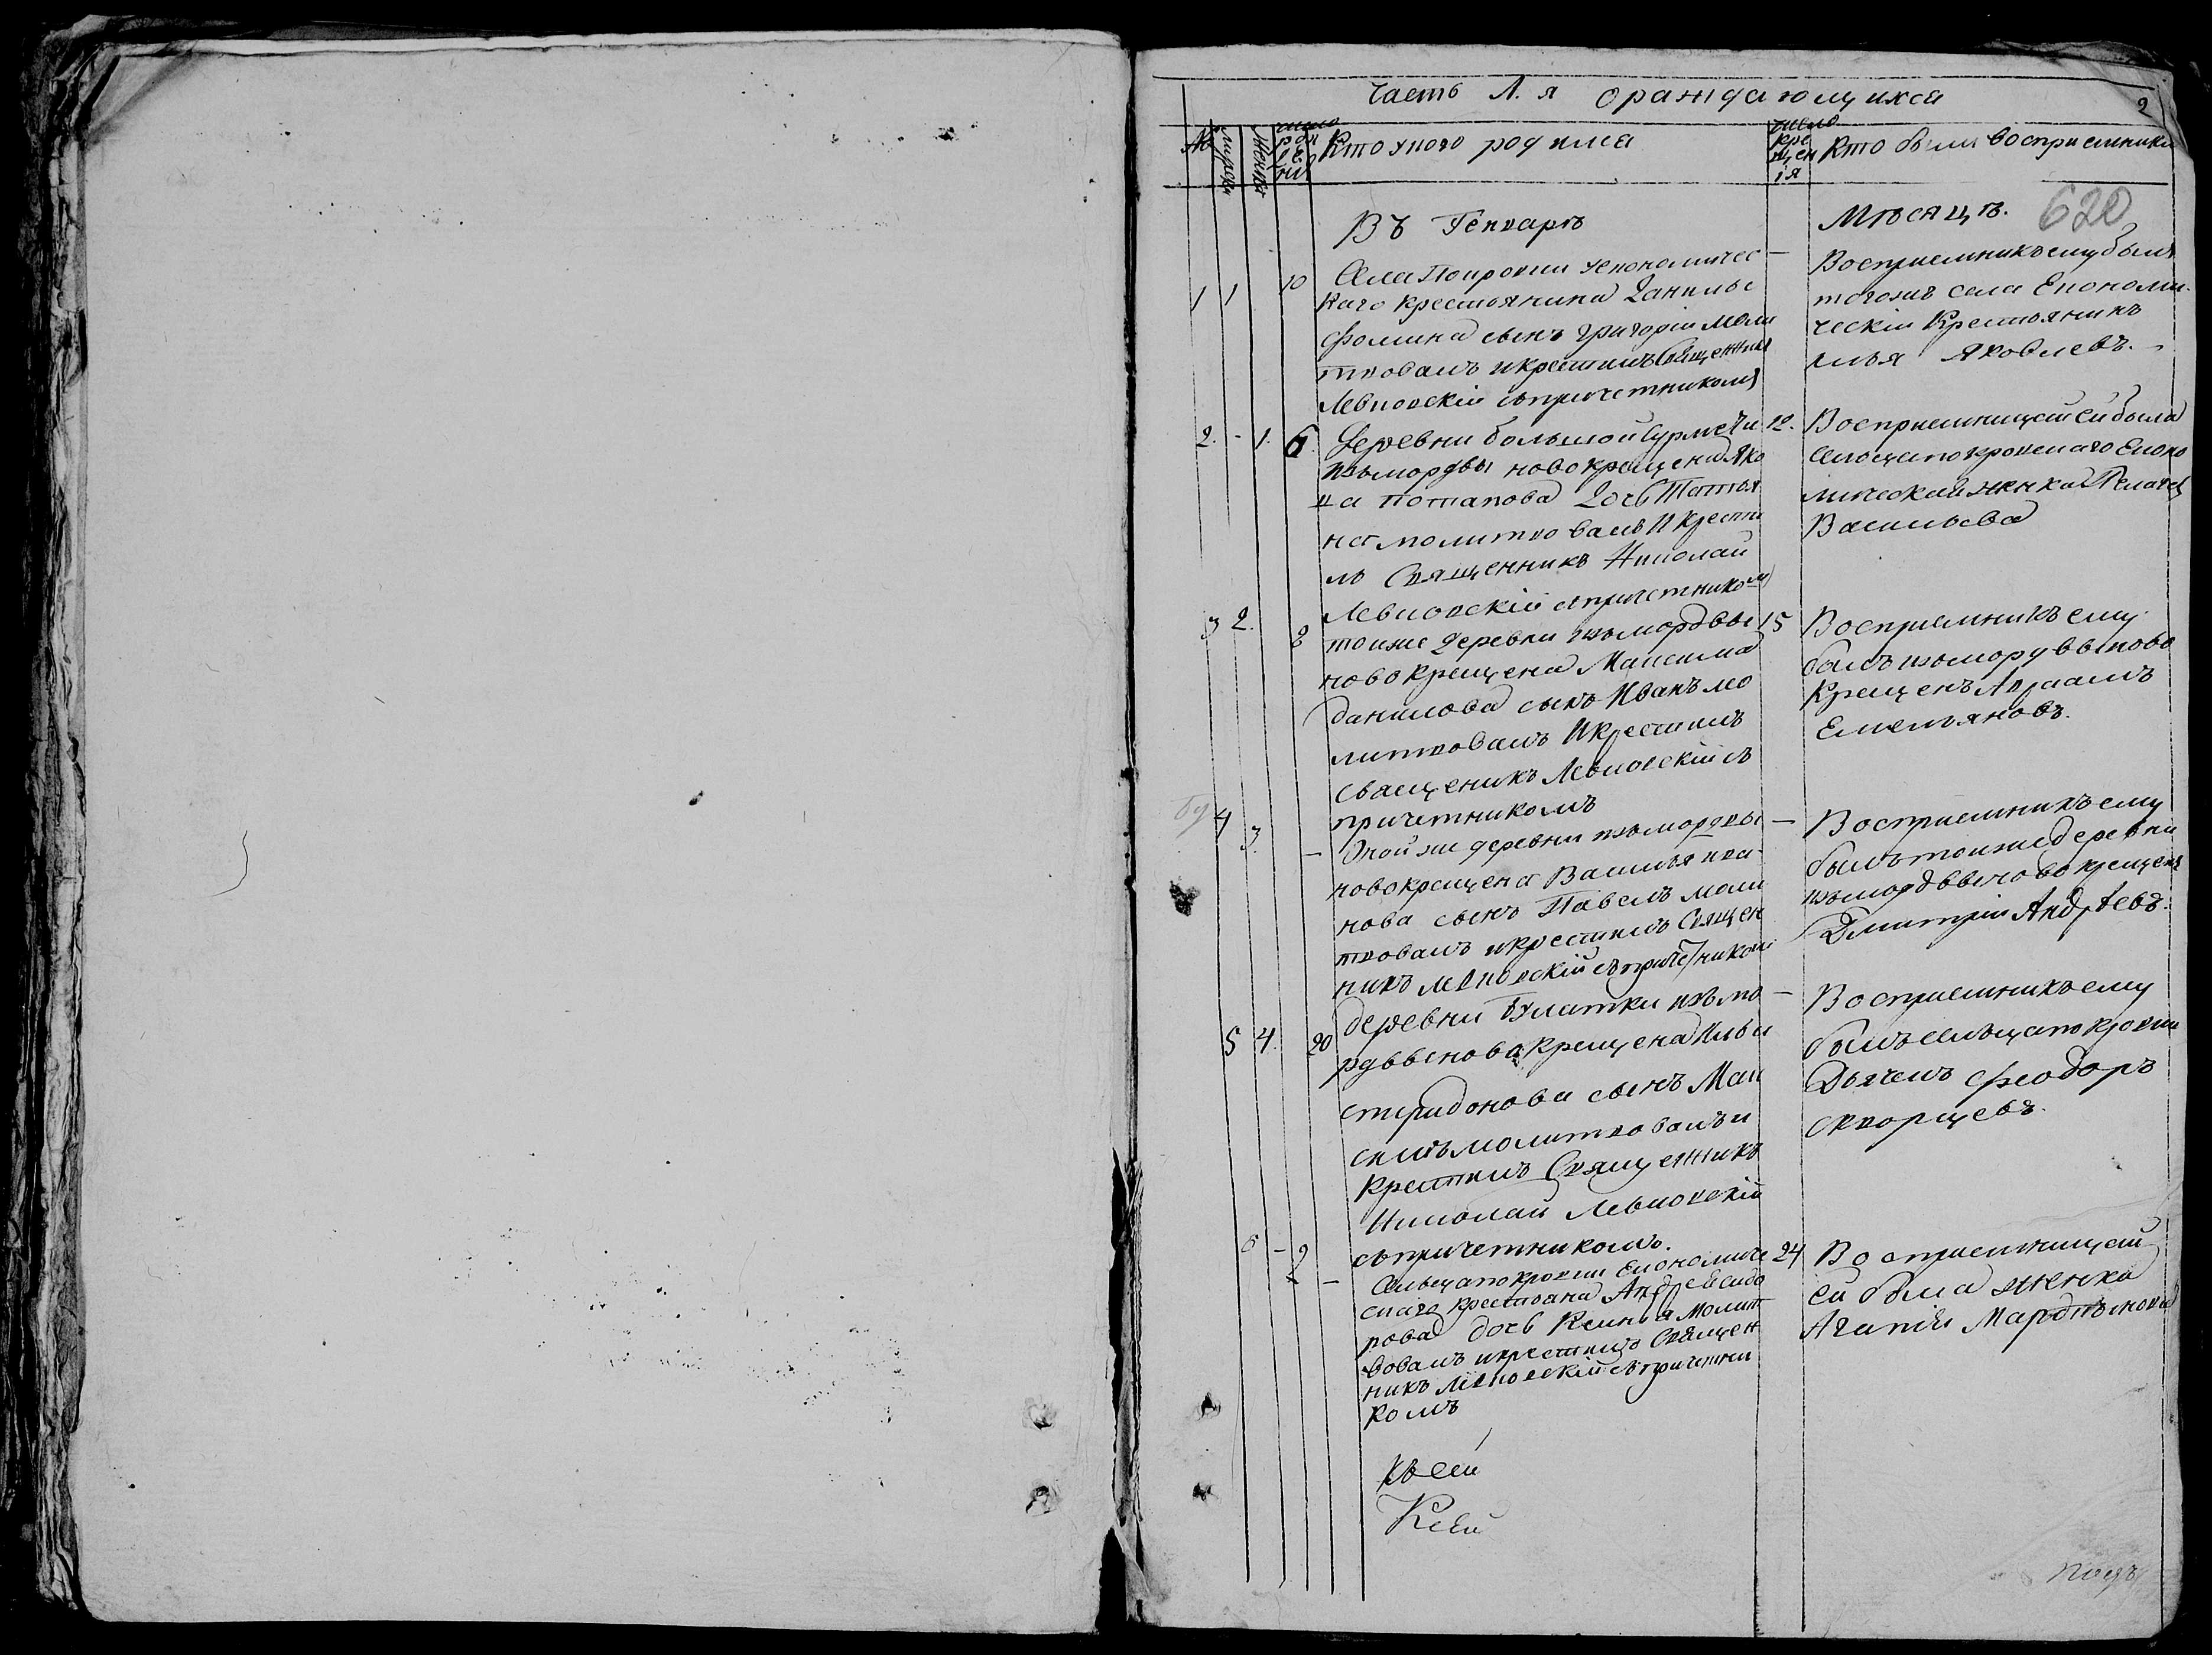 Часть 1.я о раждающихся
2
№ мужск женск число рожденi Кто у кого родился число крещенiя Кто были восприемники
Въ Генварѣ Мѣсяцѣ. 620
1 1 10 Села Покровки экономичес
каго крестьянина Данилы
Фомина сынъ Григорiй моли
твовалъ и крестилъ Священникъ
Левковскiй съ причетникомъ
Восприемникъ ему былъ
тогожъ села Економи
ческiй Крестьянинъ
Илья Яковлевъ.
2. - 1. 6. Деревни большой Сурметы 12.
изъ мордвы новокрещена Яко
ва Потапова Дочь Татья
на молитвовалъ и крести
лъ Священникъ Николай
Левковскiй съ причетникомъ
Восприемницей ей была
сельца покровскаго Еконо
мическая женка Пелагея
Васильева
3 2. 8 тоиже деревни изъ мордвы 15
новокрещена Максима
данилова сынъ Иванъ мо
литвовалъ и крестилъ
священикъ Левковскiй съ
причетникомъ
Восприемникъ ему
былъ изъ мордвы ново
крещенъ Авраамъ
Емельяновъ.
4 3. - Оной же деревни изъ мордвы -
новокрещена Василья ива
нова сынъ Павелъ моли
твовалъ и крестилъ Священ
никъ Левковскiй съ причетником
Восприемникъ ему
былъ тоиже деревни
изъ мордвы новокрещенъ
Дмитрiй Андрѣевъ.
5 4. 20 деревни Булатки изъ мо -
рдвы новокрещена Ильи
спиридонова сынъ Мак
симъ молитвовалъ и
крестилъ Священникъ
Николай Левковскiй
съ причетникомъ.
Восприемникъ ему
былъ сельца покровки
Дьячекъ Феодоръ
скворцевъ.
6 - 2 - Сельца покровки Економиче 24
скаго крестьяна Андрея сидо
рова дочь Ксинья молит
вовалъ и крестилъ Священ
никъ Левковскiй съ причетни
комъ
Восприемницей
ей была женка
Агапiя Мартынова
къ сей
Ксей